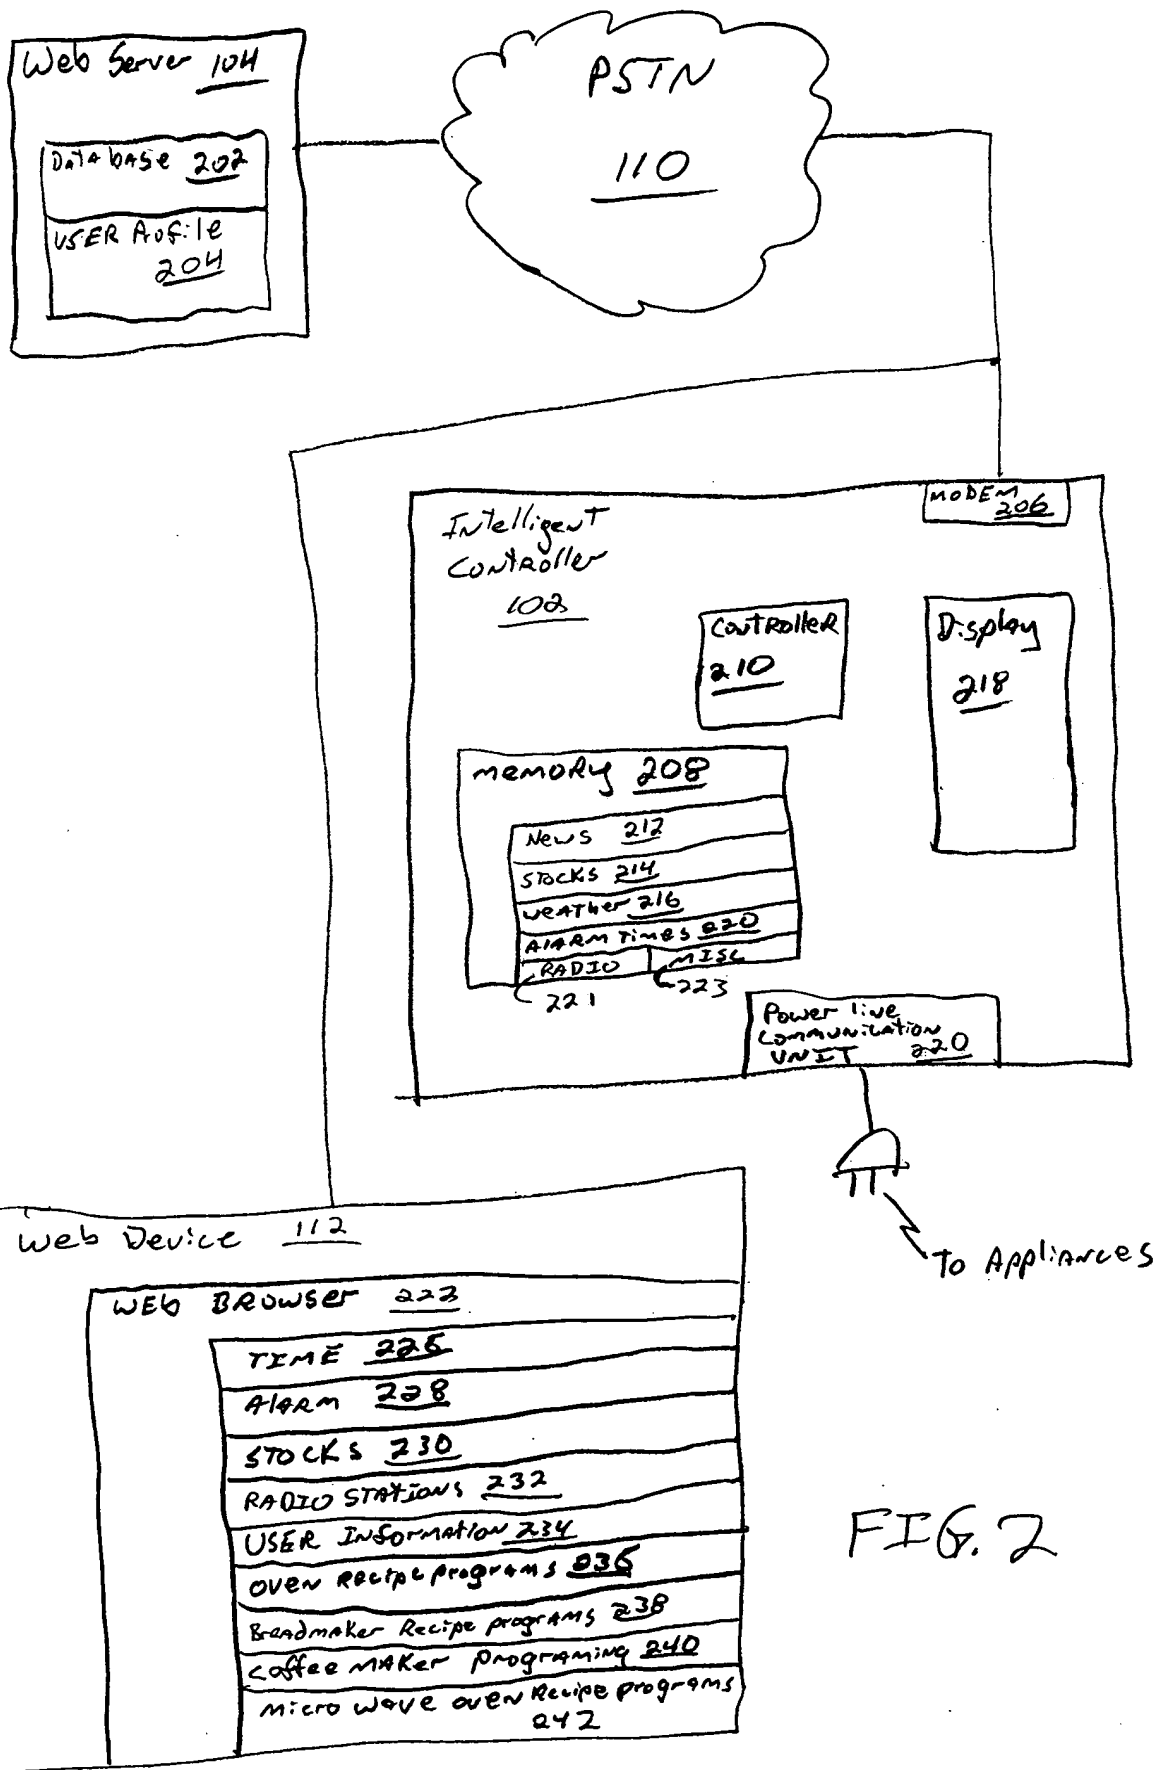 Web Server 104
DATA bASe 202
USER Profile
204
PSTN
110
MODEM
206
Intelligent
Controller
102
Controller
210
Display
218
memory 208
News 212
STOCKS 214
weather 216
AlARM Times 220
RADIO
MISC
221
223
Power line
communication
UNIT 220
To Appliances
Web Device 112
WEb BROWSer 222
TIME 226
AlARM 228
STOCKS 230
RADIO STATIONS 232
USER Information 234
oven Recipe programs 236
Breadmaker Recipe programs 238
coffee MAKer programing 240
micro wave oven Recipe programs
242
FIG. 2